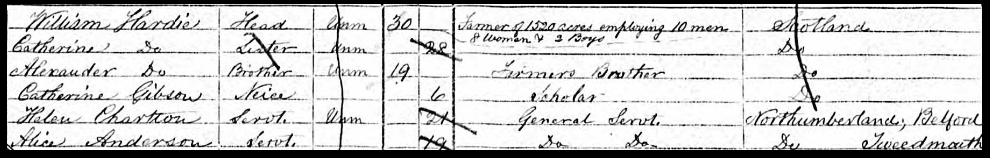 William Hardie Head Unm 30 Farmer of 1520 acres employing 10 men 8 Women & 3 Boys Scotland
Catherine Do Sister Unm 28 Do
Alexander Do Brother Unm 19 Farmers Brother Do
Catherine Gibson Neice 6 Scholar Do
Helen Charlton Servt. Unm 21 General Servt. Northumberland, Belford
Alice Anderson Servt. 19 Do Do Do Tweedmouth